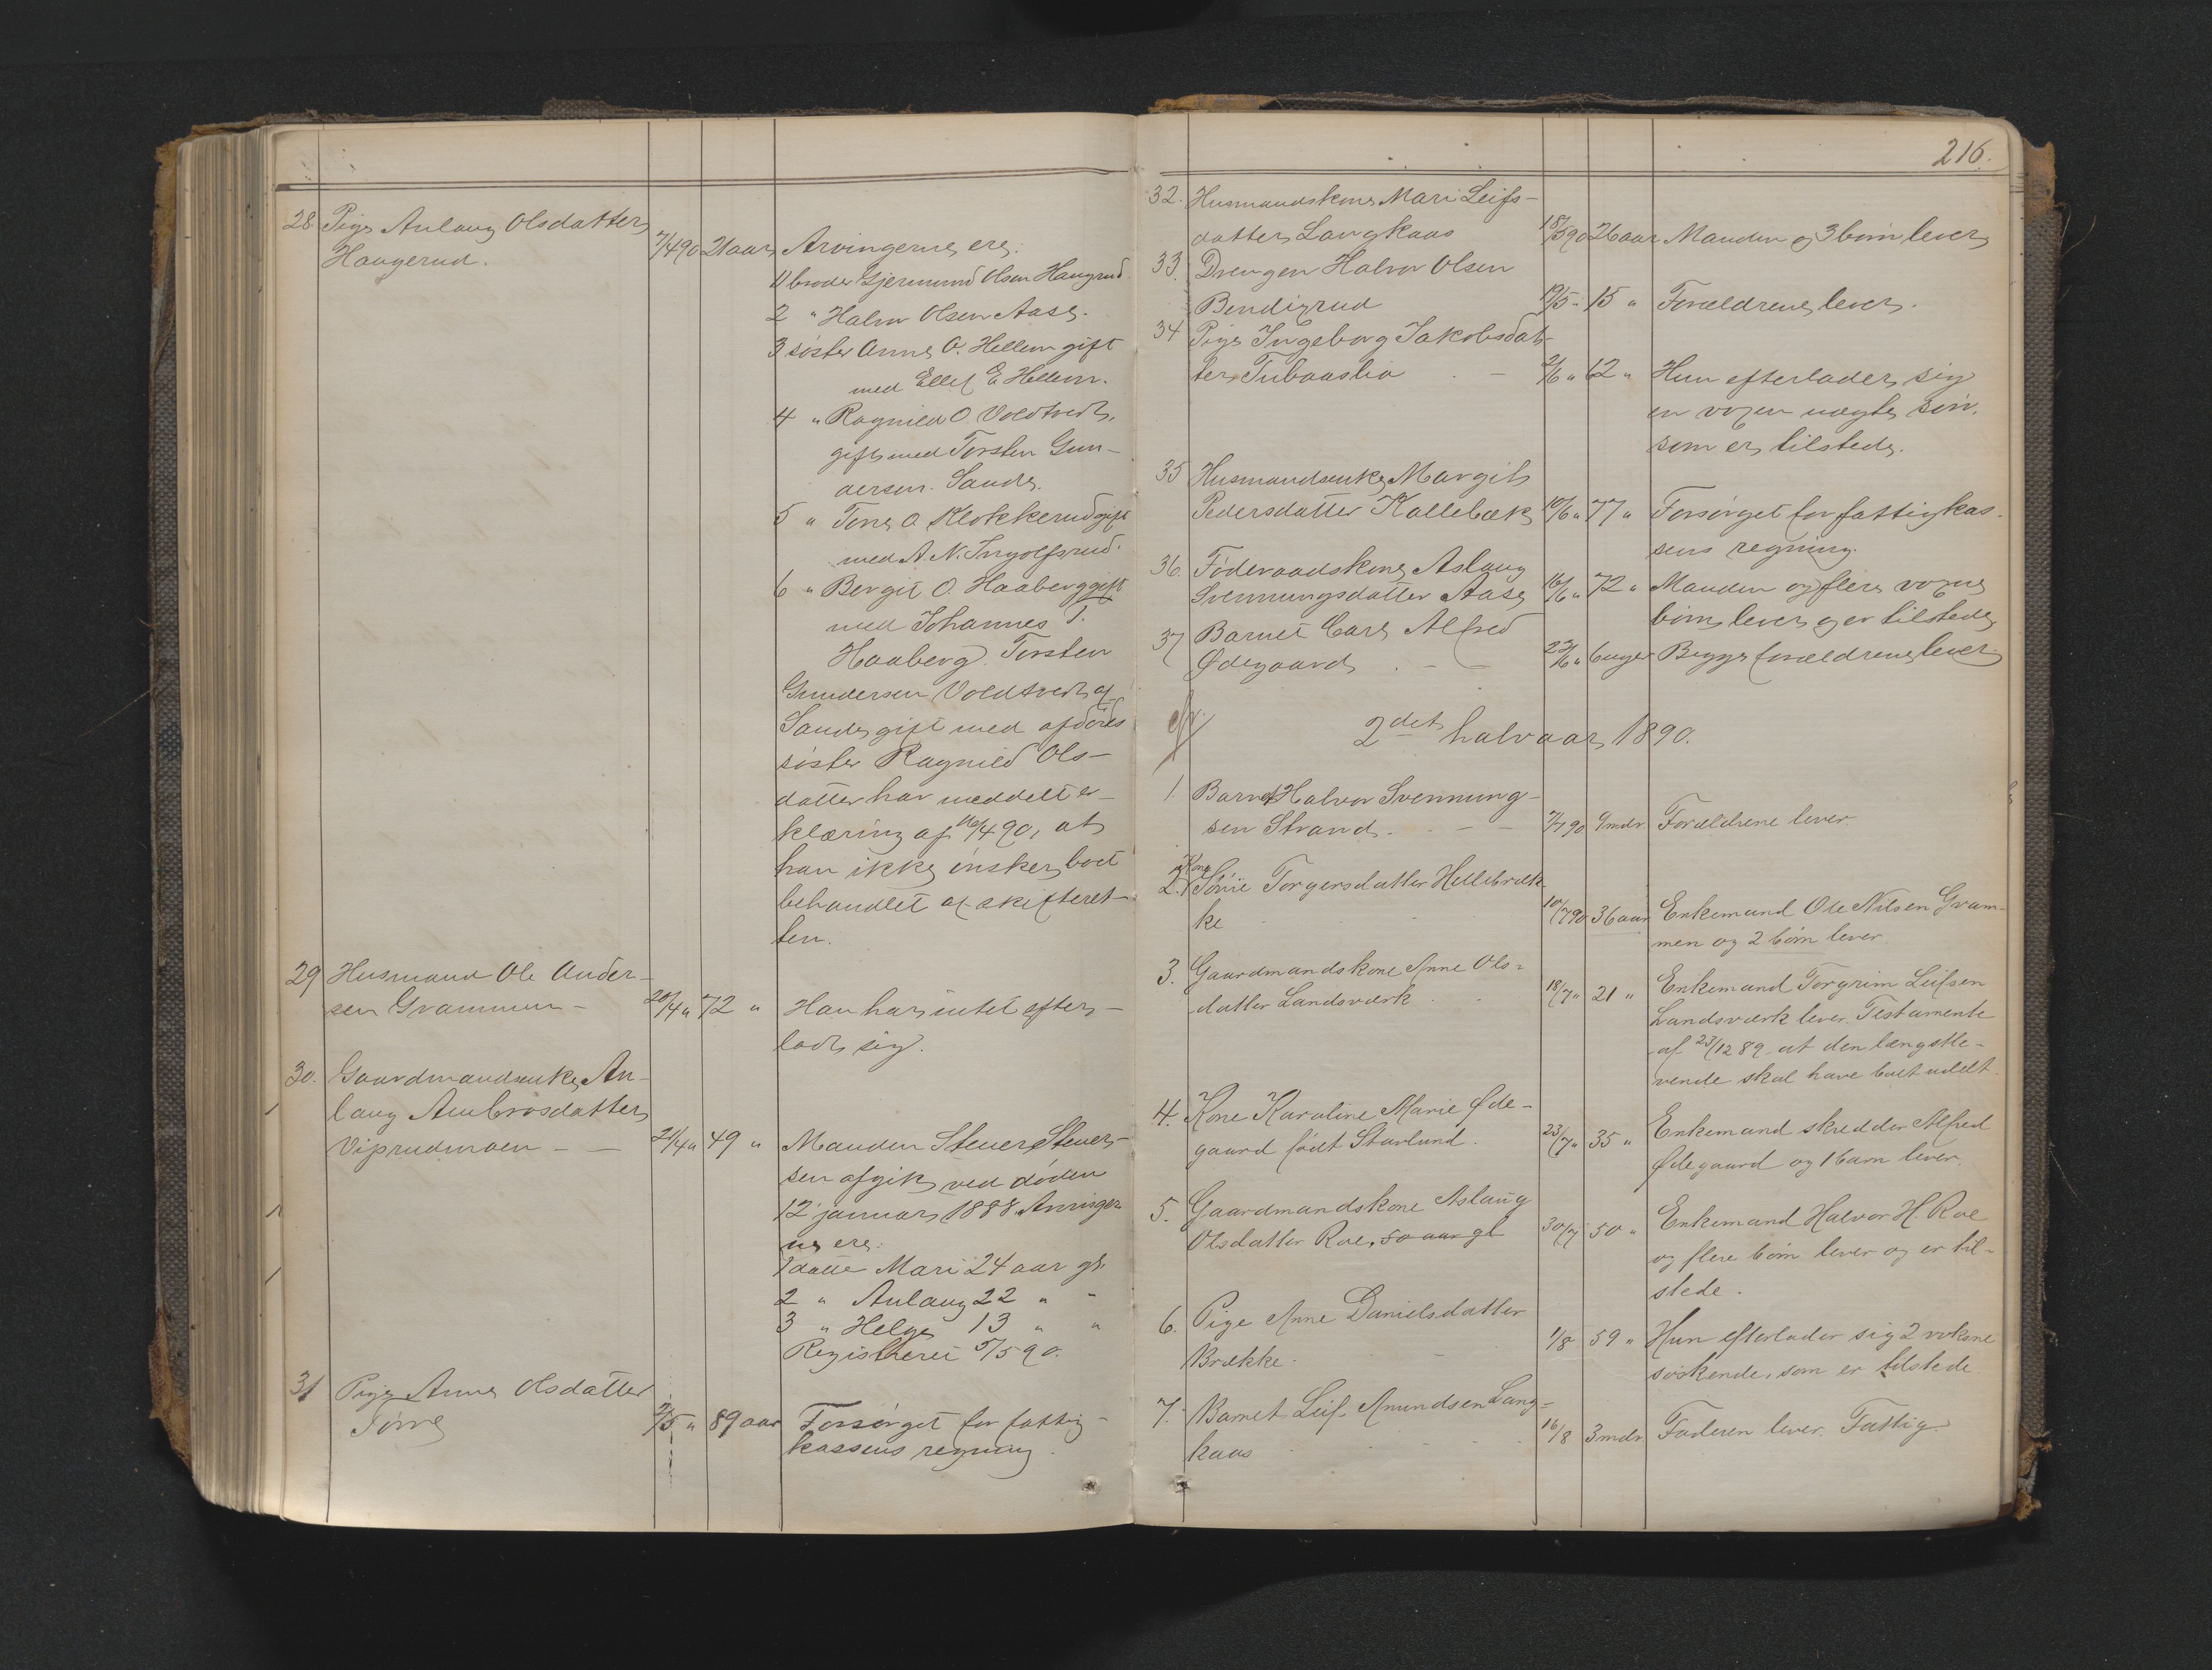 28. Pige Anlaug Olsdatter
Haugerud.
7/4 90 21 aar Arvingerne ere:
1) broder Gjermund Olsen Haugrud
2 " Halvor Olsen Aase.
3 søster Anne O. Hellem gift
med Ellef E Hellem.
4 " Ragnild O. Voldtvedt,
gift med Torsten Gun-
dersen. Sande.
5 " Tone O Klokkerud gift
med A. N. Ingolfsrud.
6 " Bergit O. Haaberg gift
med Johannes T.
Haaberg. Torsten
Gundersen Voldtvedt af
Sande gift med afdødes
søster Ragnild Ols-
datter har meddelt er-
klæring af 16/4 90, at
han ikke ønsker boet
behandlet af skifteret-
ten.
29 Husmand Ole Ander-
sen Grammen -
20/4 " 72 " Han har intet efter-
ladt sig.
30. Gaardmandsenke An-
laug Ambrosdatter
Viprudmoen - -
21/4 " 49 " Manden Stener Stener-
sen afgik ved døden
12 januar 1888. Arvinger-
ne ere:
1 datter Mari 24 aar gl.
2 " Anlaug 22 " "
3 " Helge 13 " "
Registreret 5/5 90.
31 Pige Anne Olsdatter
Tørre
2/5 " 89 aar Forsørget for fattig-
kassens regning.
216.
32. Husmandskone Mari Leifs-
datter Langkaas 18/5 90 26 aar Manden og 3 børn lever
33. Drengen Halvor Olsen
Bendigrud 19/5 " 15 " Forældrene lever.
34 Pige Ingeborg Jakobsdat-
ter Tubaaslia - 2/6 " 62 " Hun efterlader sig
en voxen uægte søn.
som er tilstede.
35 Husmandsenke Margit
Pedersdatter Kallebæk 10/6 " 77 " Forsørget for fattigkas-
sens regning.
36. Føderaadskone Aslaug
Svennungsdatter Aase 16/6 " 72 " Manden og flere voxne
børn lever og er tilstede
37 Barnet Carl Alfred
Ødegaard - - 23/6 " 6 uger Begge forældrene lever
2det halvaar 1890.
1. Barnet Halvor Svennung-
sen Strand. - - 7/7 90 9 mdr Forældrene lever.
Kone
2. Sønie Torgersdatter Hellebræk-
ke 10/7 90 36 aar Enkemand Ole Nilsen Gram-
men og 2 børn lever
3. Gaardmandskone Anne Ols-
datter Landsværk 18/7 " 21 " Enkemand Torgrim Leifsen
Landsværk lever. Testamente
af 23/12 89 at den længstle-
vende skal have boet udelt.
4. Kone Karoline Marie Øde-
gaard født Starlund. 23/7 " 35 " Enkemand skredder Alfred
Ødegaard og 1 barn lever.
5. Gaardmandskone Aslaug
Olsdatter Roe, 50 aar gl 30/7 50 " Enkemand Halvor H. Roe
og flere børn lever og er til-
stede.
6. Pige Anne Danielsdatter
Brække. 1/8 59 " Hun efterlader sig 2 voksne
søskende, som er tilstede
7. Barnet Leif Amundsen Lang-
kaas 16/8 3 mdr Faderen lever. Fattig.